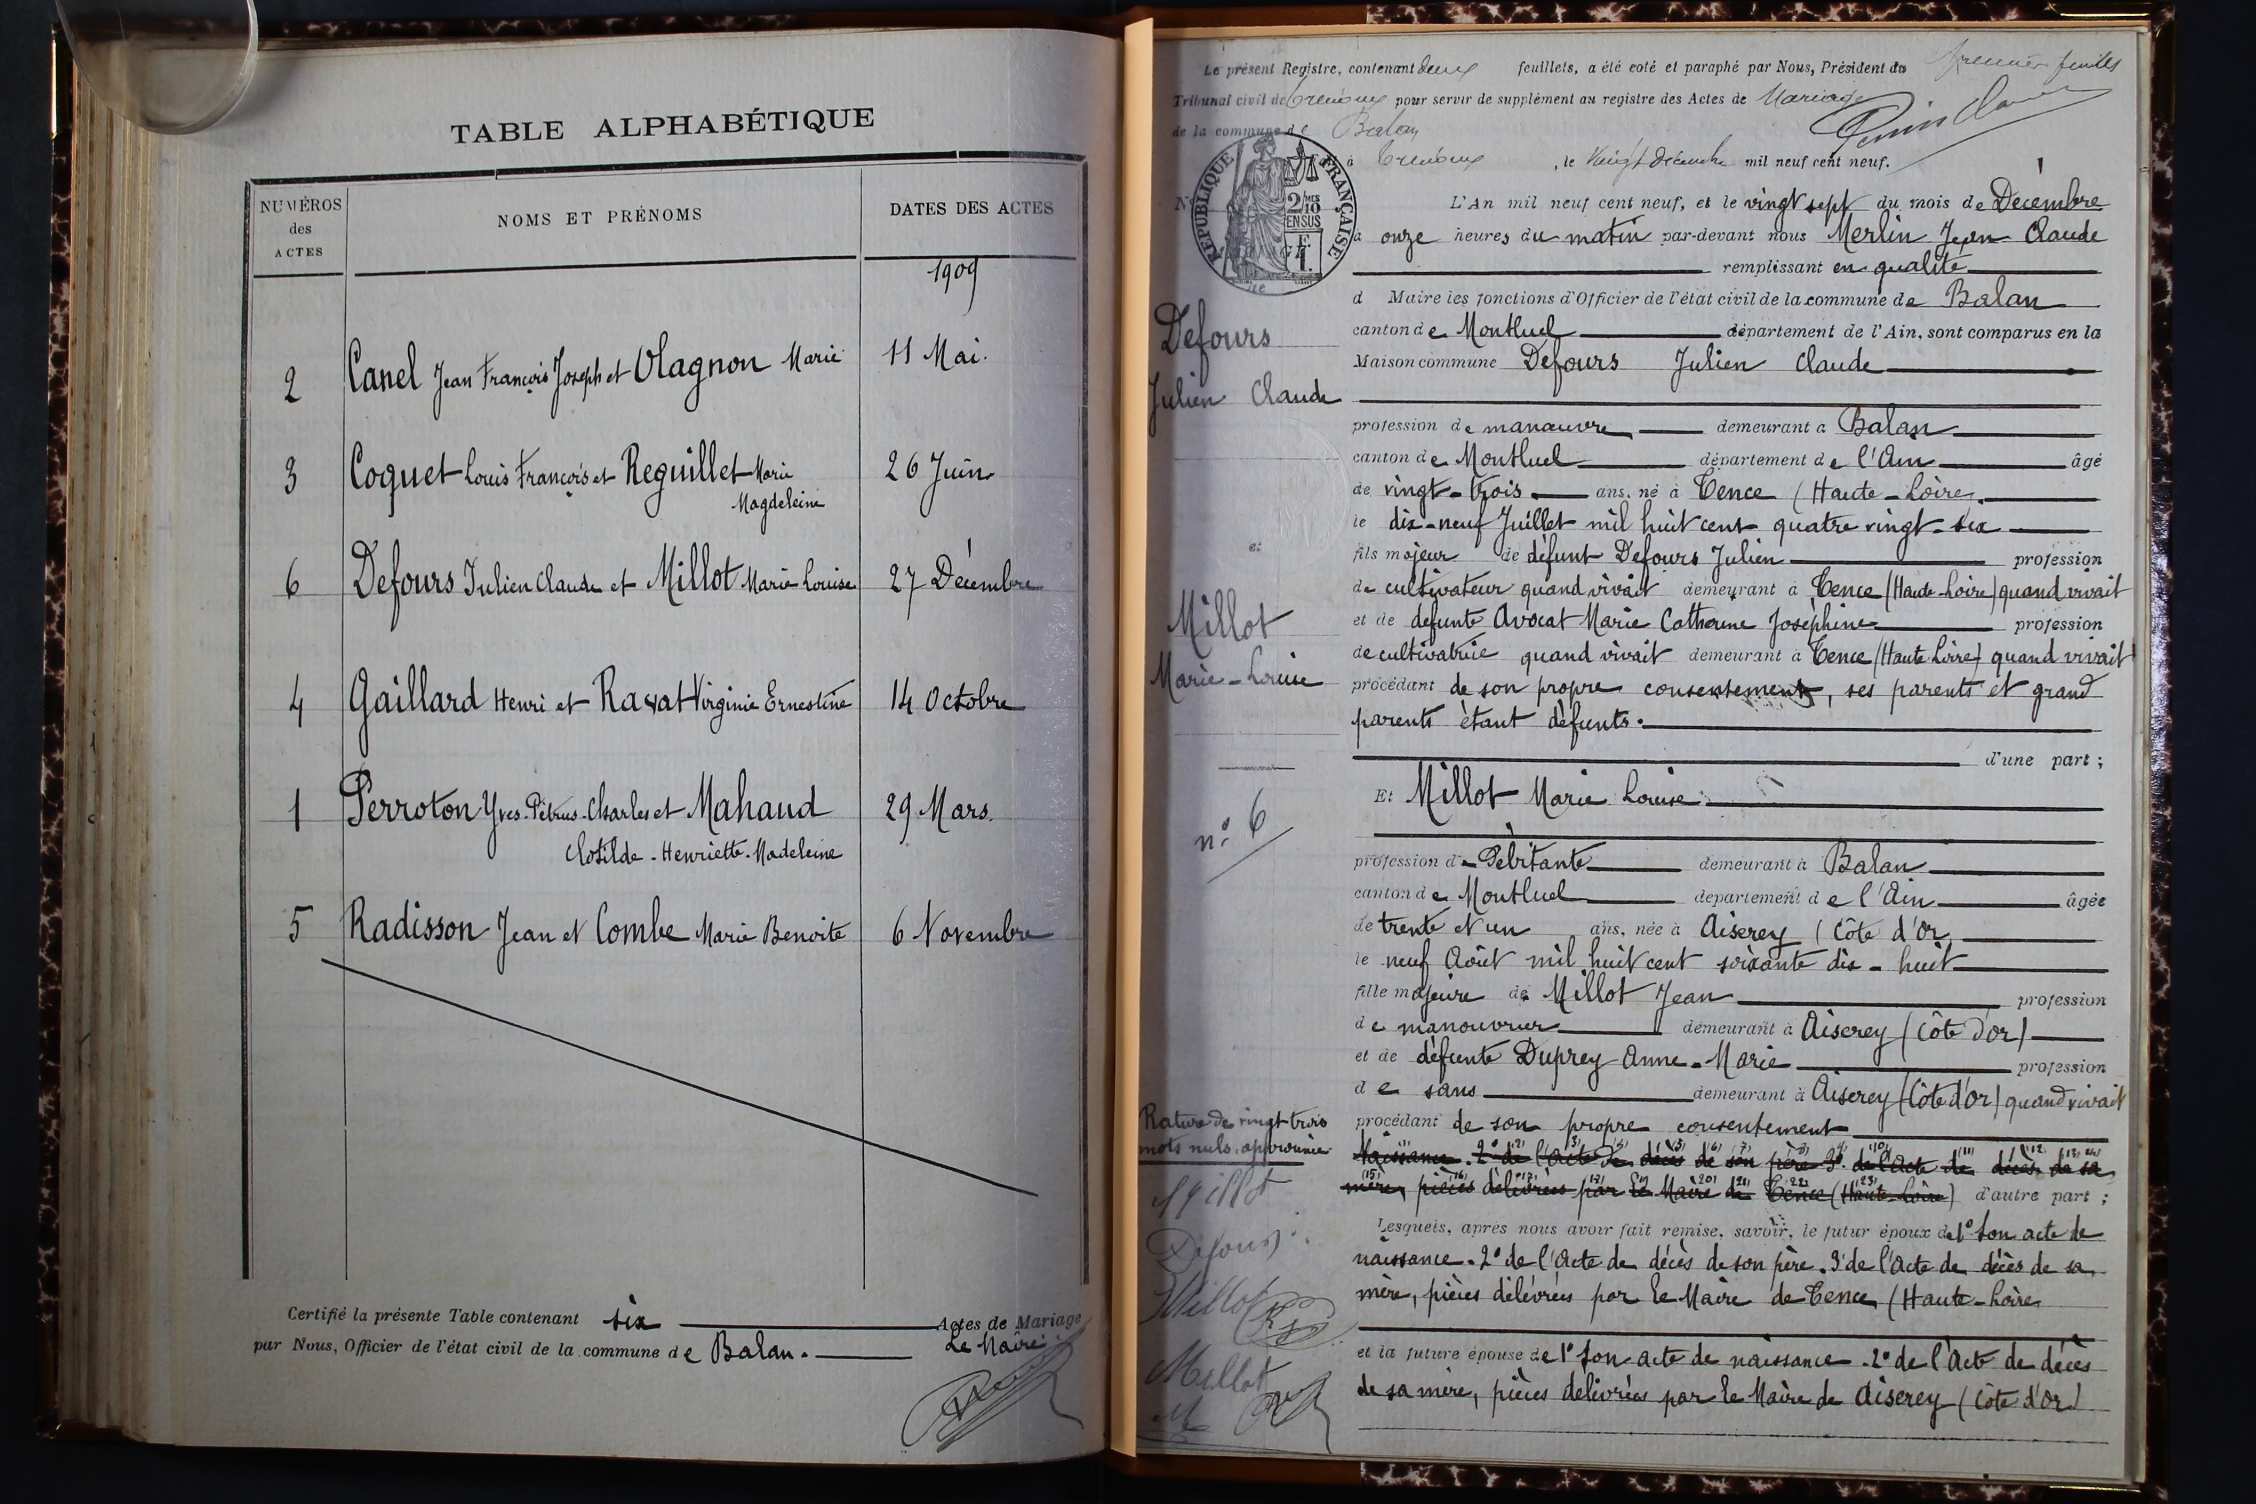 TABLE ALPHABÉTIQUE
NUMÉROS des ACTES
NOMS ET PRÉNOMS
DATES DES ACTES
1909
2 Canel Jean François Joseph et Olagnon Marie 11 Mai.
3 Coquet Louis François et Reguillet Marie 26 Juin
Magdeleine
6 Defours Julien Claude et Millot Marie Louise 27 Décembre
4 Gaillard Henri et Ravat Virginie Ernestine 14 Octobre
1 Perroton Yves-Pétrus-Charles et Mahaud 29 Mars.
Clotilde-Henriette-Madeleine
5 Radisson Jean et Combe Marie Benoite 6 Novembre
Certifié la présente Table contenant six Actes de Mariage
par Nous, Officier de l'état civil de la commune de Balan.
Le Maire
Le présent Registre, contenant deux feuillets, a été coté et paraphé par Nous, Président du
Premier feuillet
Tribunal civil de Trévoux pour servir de supplément au registre des Actes de Mariage
de la commune de Balan
à Trévoux, le Vingt Décembre mil neuf cent neuf.
RÉPUBLIQUE FRANÇAISE
2/10 EN SUS
Defours
Julien Claude
et
Millot
Marie-Louise
n° 6
L'An mil neuf cent neuf, et le vingt sept du mois de Décembre
à onze heures du matin par-devant nous Merlin Jean Claude
remplissant en qualité
d Maire les fonctions d'Officier de l'état civil de la commune de Balan
canton de Montluel département de l'Ain, sont comparus en la
Maison commune Defours Julien Claude
profession de manœuvre demeurant à Balan
canton de Montluel département de l'Ain âgé
de vingt-trois ans, né à Tence (Haute-Loire)
le dix-neuf Juillet mil huit cent quatre vingt-six
fils majeur de défunt Defours Julien profession
de cultivateur quand vivait demeurant à Tence (Haute-Loire) quand vivait
et de défunte Avocat Marie Catherine Joséphine profession
de cultivatrice quand vivait demeurant à Tence (Haute Loire) quand vivait
procédant de son propre consentement, ses parents et grand
parents étant défunts.
d'une part;
Et Millot Marie Louise
profession de Débitante demeurant à Balan
canton de Montluel département de l'Ain âgée
de trente et un ans, née à Aiserey (Côte d'or)
le neuf Août mil huit cent soixante dix-huit
fille majeure de Millot Jean profession
de manouvrier demeurant à Aiserey (Côte d'or)
et de défunte Duprey Anne-Marie profession
de sans demeurant à Aiserey (Côte d'Or) quand vivait
procédant de son propre consentement
Naissance. 2° de l'acte de décès de son père 3° de l'Acte de décès de sa
mère, pièces délivrées par le Maire de Tence (Haute-Loire) d'autre part;
Rature de vingt trois
mots nuls approuvée
Millot
Defours
Millot
Millot
Lesquels, après nous avoir fait remise, savoir, le futur époux de 1° son acte de
naissance. 2° de l'Acte de décès de son père. 3° de l'Acte de décès de sa
mère, pièces délivrées par le Maire de Tence (Haute-Loire
et la future épouse de 1° son acte de naissance. 2° de l'Acte de décès
de sa mère, pièces délivrées par le Maire de Aiserey (Côte d'Or)